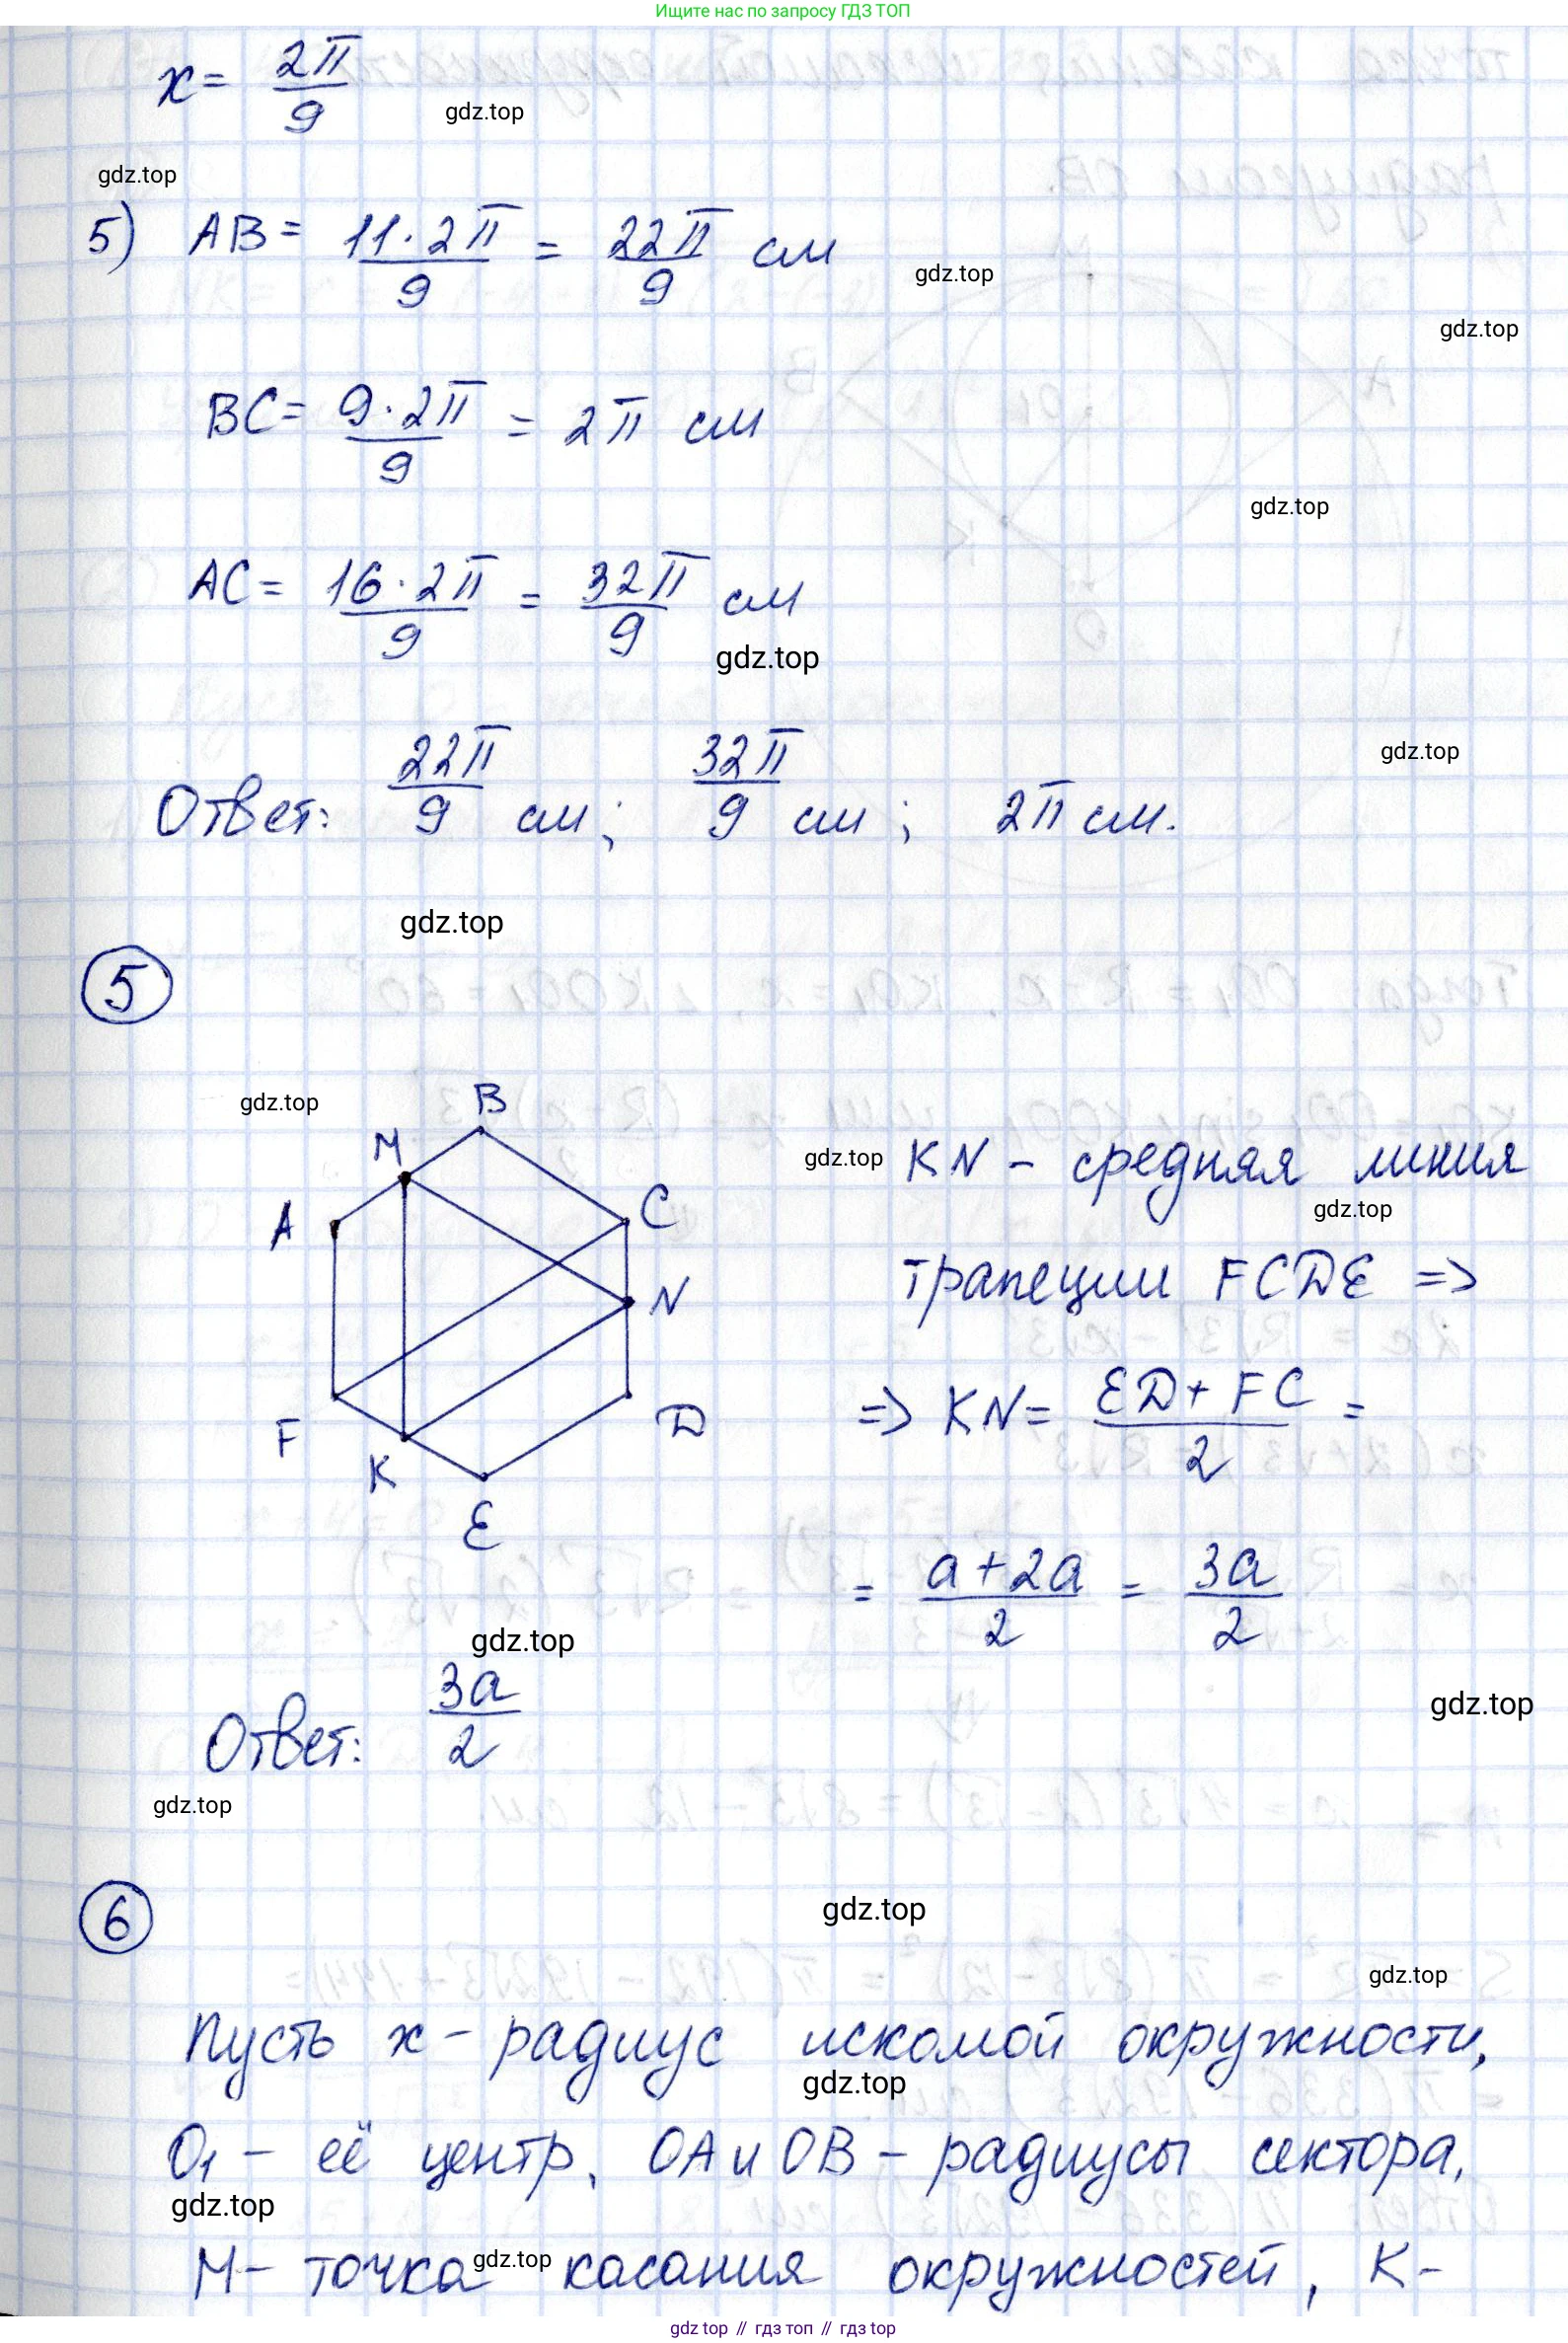 Ищите нас по запросу ГДЗ ТОП
x = 2π/9
gdz.top
gdz.top
5) AB = 11·2π/9 = 22π/9 см
gdz.top
gdz.top
BC = 9·2π/9 = 2π см
gdz.top
AC = 16·2π/9 = 32π/9 см
gdz.top
gdz.top
Ответ: 22π/9 см; 32π/9 см; 2π см.
gdz.top
5
gdz.top
B
M
A
C
N
F
D
K
E
gdz.top
KN – средняя линия
gdz.top
трапеции FCDE =>
=> KN = ED + FC/2 =
= a + 2a/2 = 3a/2
gdz.top
gdz.top
Ответ: 3a/2
gdz.top
6
gdz.top
gdz.top
Пусть x – радиус искомой окружности,
gdz.top
O₁ – её центр, OA и OB – радиусы сектора,
gdz.top
M – точка касания окружностей, K –
gdz.top
gdz top // гдз топ // гдз top